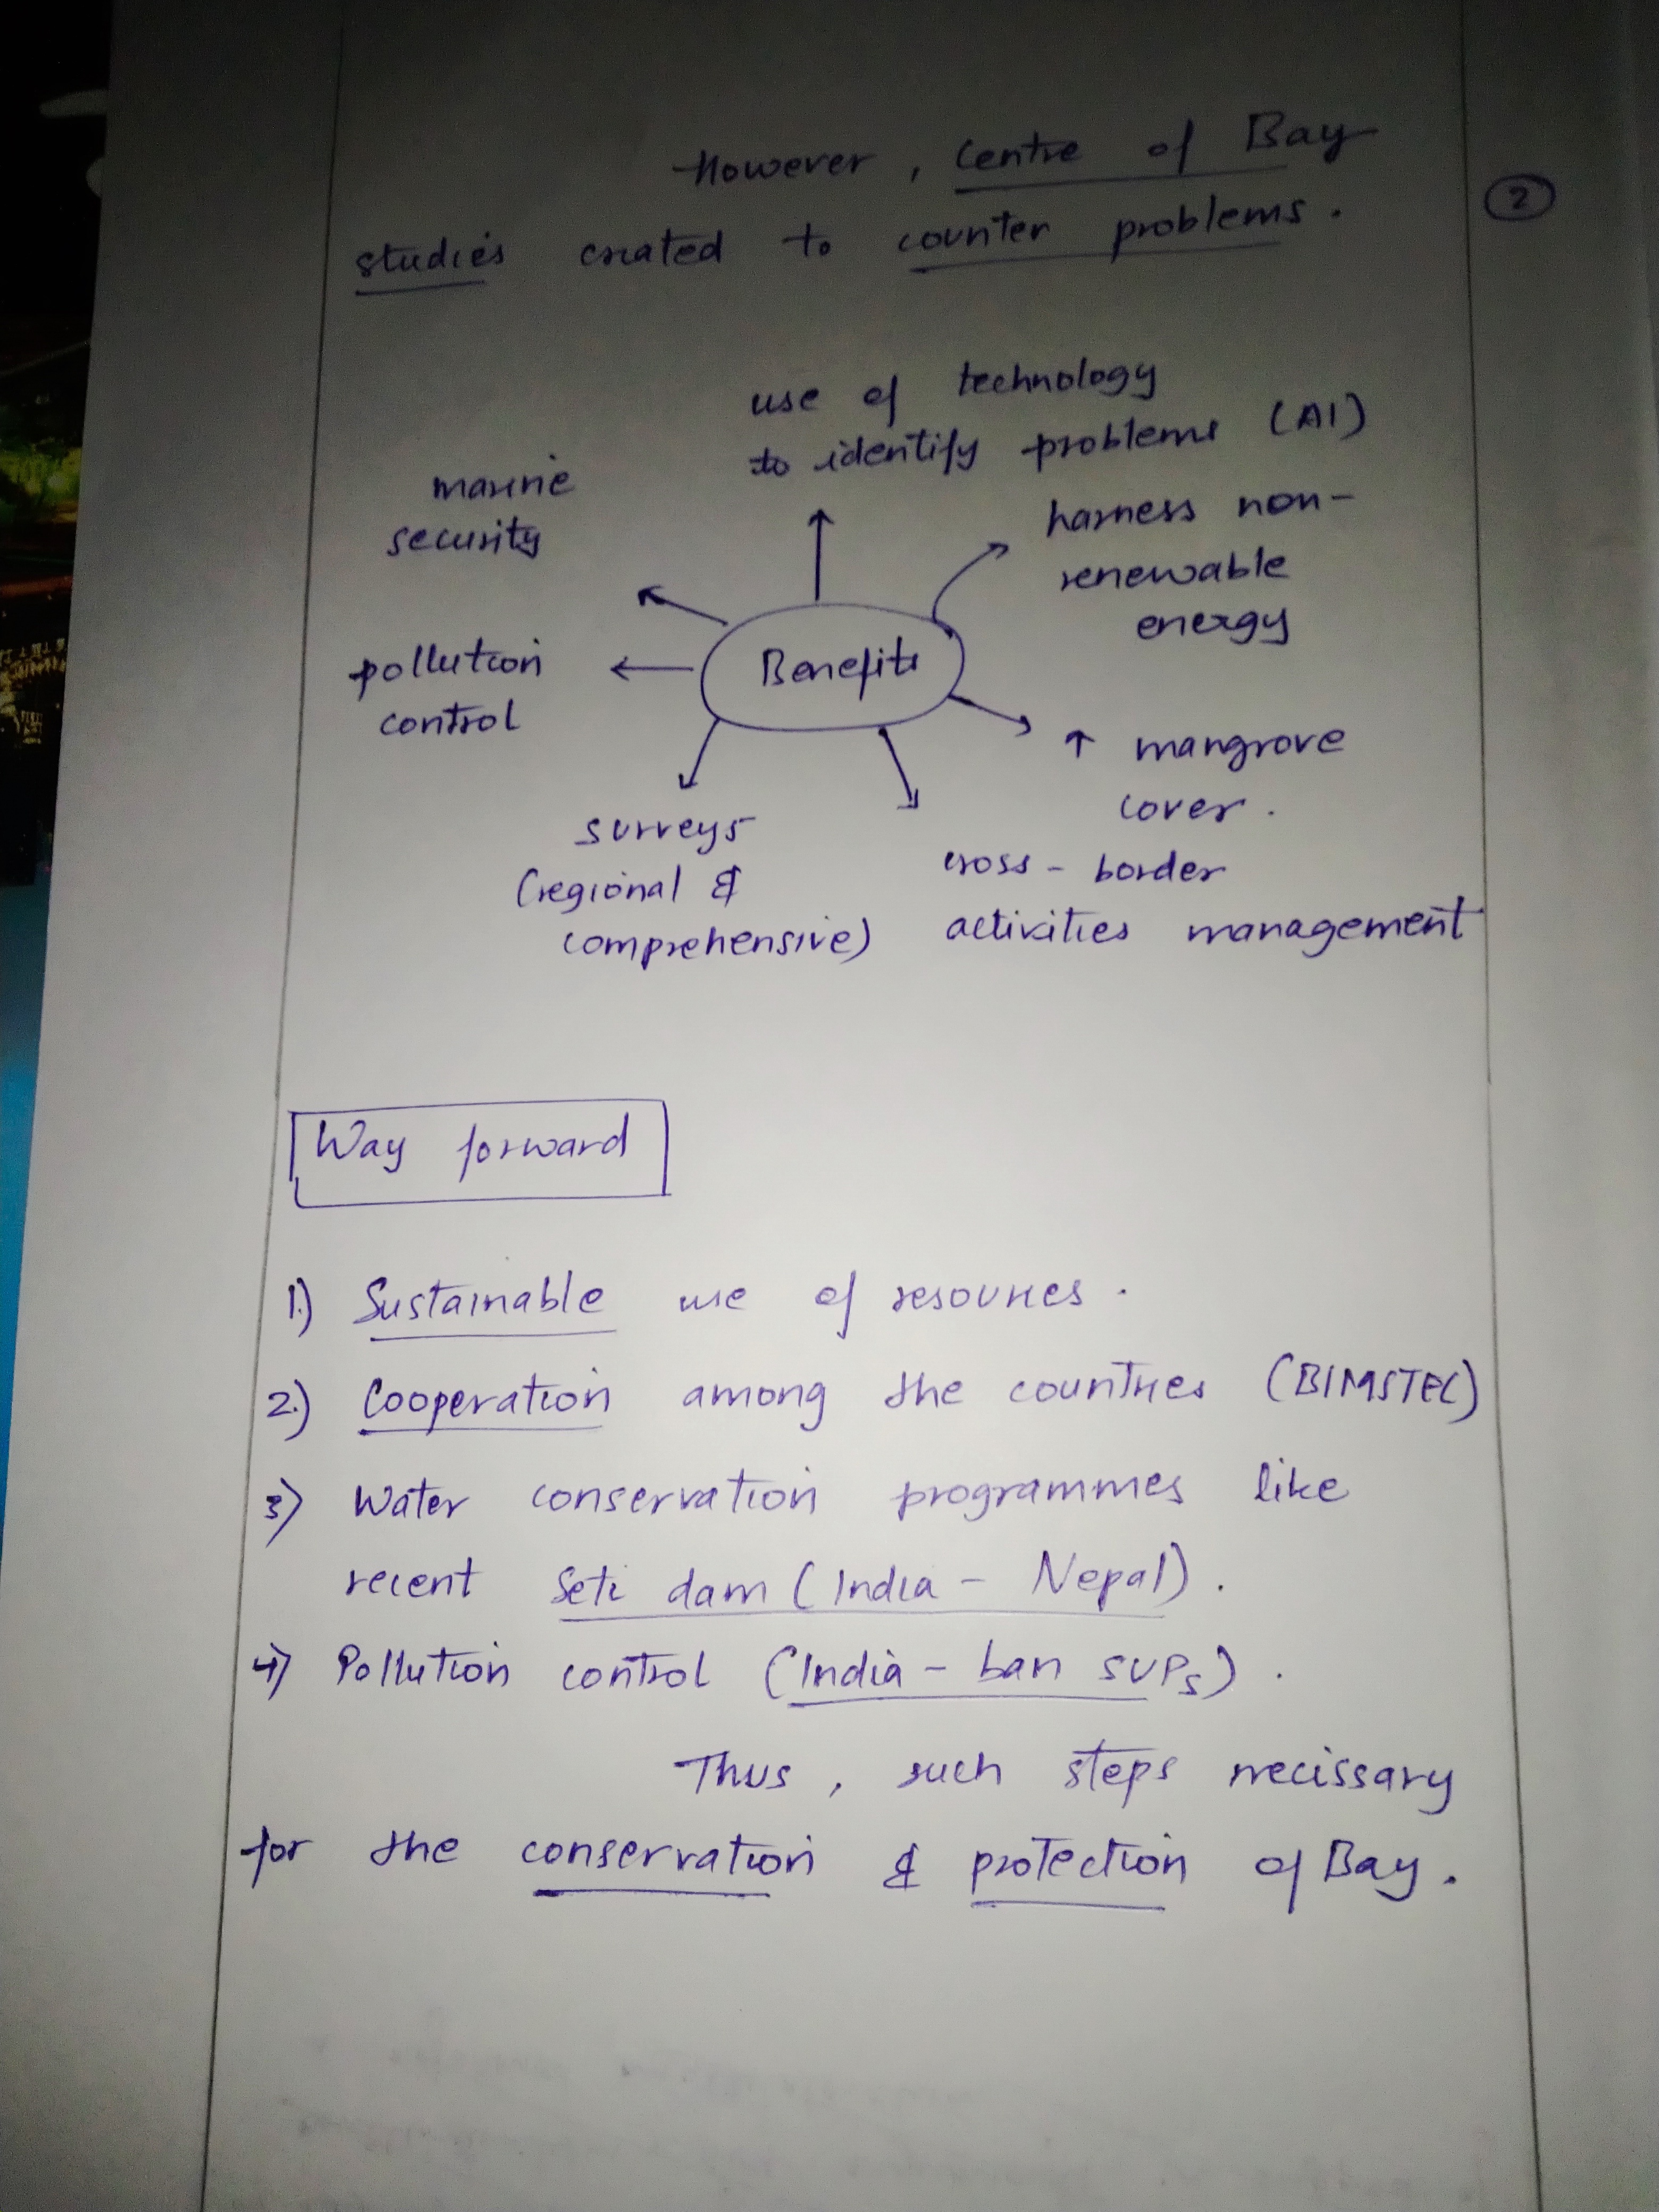 However, Centre of Bay
studies created to counter problems.
2
use of technology
to identify problems (AI)
marine
security
harness non-
renewable
energy
Benefits
pollution
control
↑ mangrove
cover.
surveys
(regional &
comprehensive)
cross-border
activities management
Way forward
1.) Sustainable use of resources.
2.) Cooperation among the countries (BIMSTEC)
3) Water conservation programmes like
recent Seti dam (India - Nepal).
4) Pollution control (India - ban SUPs).
Thus, such steps necissary
for the conservation & protection of Bay.